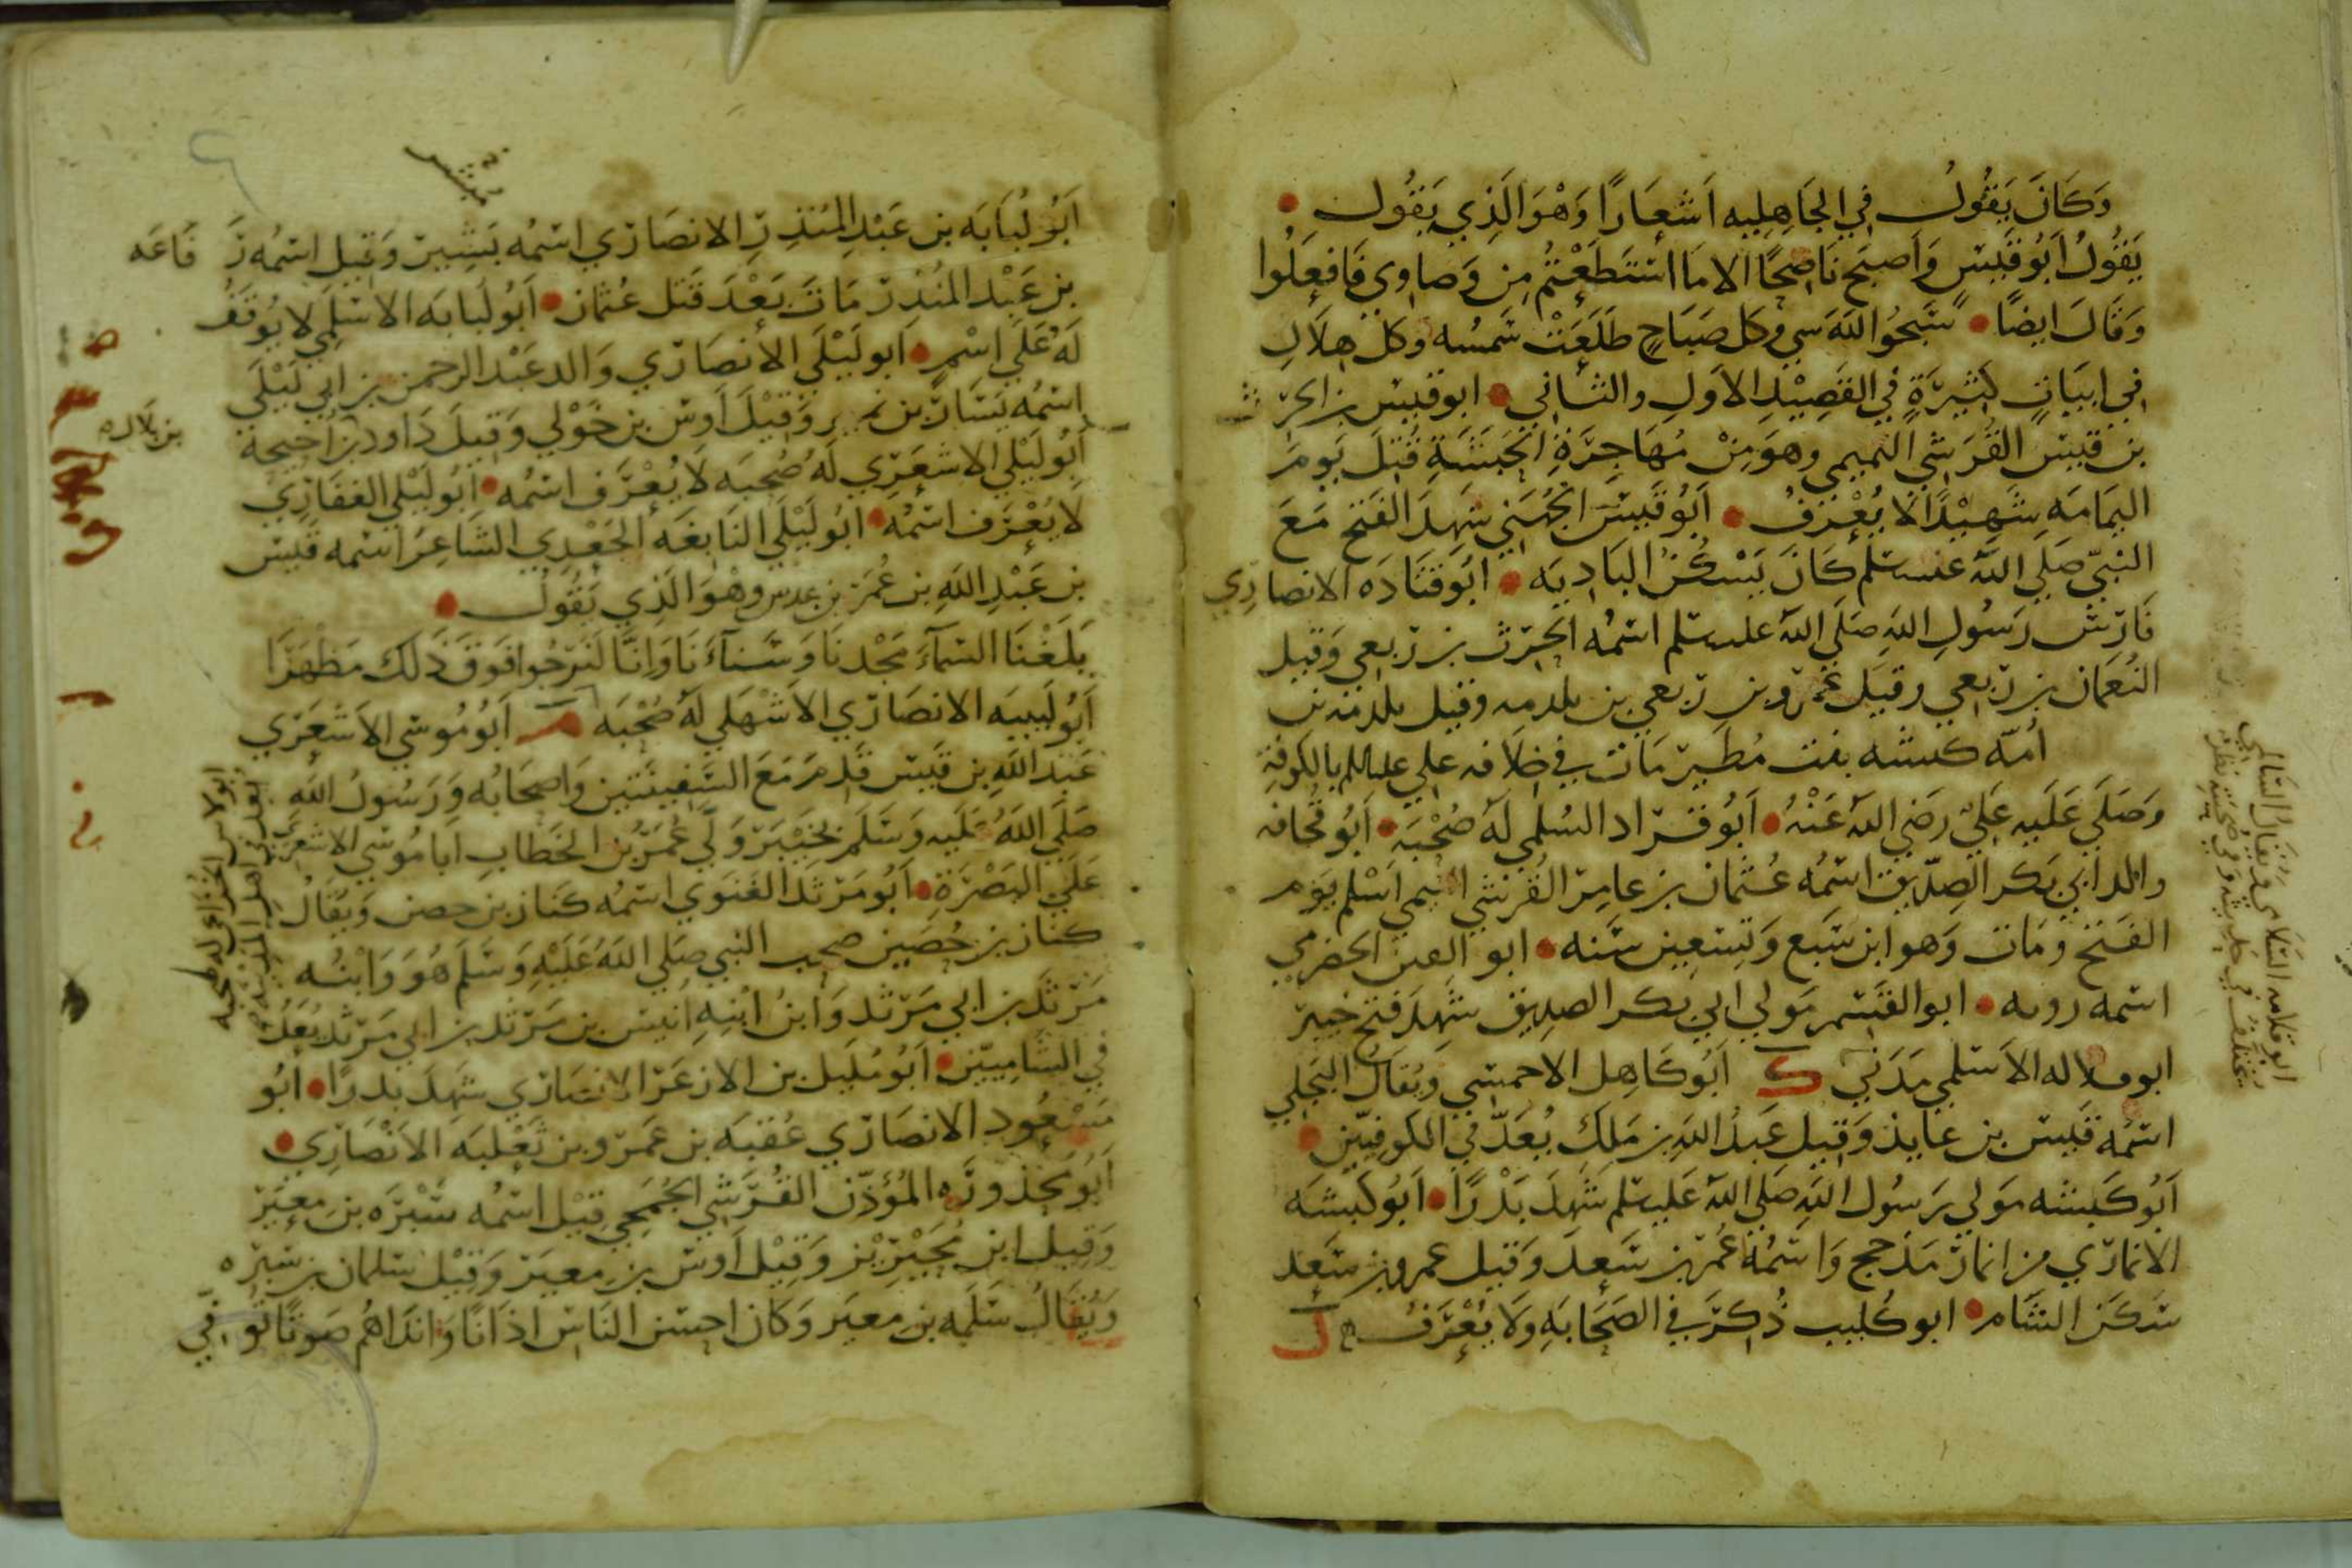 وَكَانَ يَقُولُ في الجَاهِلِيه اَشعَارًا وَهْوَ الَّذِي يَقُول
يَقُولُ اَبُو قَيسٍ وَاَصبَح نَاصِحًا الا مَا اسْتَطَعْتُم مِن وَصاوي فَافعَلُوا
وَقَالَ ايضًا سَبّحُوا اللَّهَ كل صَبَاحٍ طَلَعَتْ شَمسُه وكل هِلَالِ
في ابيَاتٍ كثِيرَةٍ في القَصِيْدِ الاَولِ والثاني ابو قيس بن الحرث
بن قيس القُرَشي وهوَ مِنْ مُهَاجِرَةِ الحَبَشَةِ قُتِلَ يَومَ
اليَمَامَه شَهِيْدًا لا يُعْرَفُ اَبُو قَيسٍ الجُهَني شَهدَ الفَتح مَعَ
النبيّ صَلي الله عليه سلم كَانَ يَسْكُنُ البَادِيَه ابو قَتَادَه الانصاري
فَارِسُ رَسُولِ اللَّهِ صَلَى الله عليه سلم اسْمُه الحرث بن رِبعي وَقيل
النُعمَان بن رِبعي وقيل عَمرو بن رِبعي بن بلدمه وقيل بلدمه بن
اُمّه كبشه بنت مُطَهِر مَات في خِلَافه علي عليه السلم بالكوفة
وَصَلَى عَلَيه عَلِيٌ رَضي الله عَنْهُ اَبُو قراد السُلمي لَهُ صُحْبَه اَبُو قُحَافه
والد ابي بَكر الصِدّيق اسْمُه عُثمان بن عامِر القُرَشي التيمي اَسْلم يَوم
الفَتح ومَات وَهو ابن سَبع وَتِسْعِين سَنه ابو القين الحضرمي
اسمه ابو القَسم مَولي ابي بكر الصديق شَهِدَ فتح خيبر
الاَسْلمي مَدَني ك اَبُو كَاهِل الاحمسِي وَيُقالُ البَجَلي
اسْمُه قَيس بن عايذ وَقيل عَبدُ اللَّهِ بن مَلك يُعَدّ في الكوفيّين
اَبُو كَبشه مَولي رَسُول اللَّهِ صَلى الله عَليه سلم شَهِدَ بَدْرًا اَبُو كَبشَه
الانماري من انمار مَذحج وَاسْمُهُ عُمَر بن سَعد وَقيل عمرو بن سَعد
سَكَن الشَام ابو كُليب ذُكِرَ في الصَحَابَهِ وَلَا يُعْرَفُ ل
ابو قدامه
اَبُو لُبَابَه بن عَبْدِ المُنذِرِ الانصَاري اسْمُه بَشِير وَقيل اسْمُه رفَاعَه
بن عَبْد المُنذِر مَاتَ بَعْدَ قَتل عُثمان اَبُو لبابَه الاسْلَمي لا يُوقَفُ
لَهُ عَلَي اسْمٍ اَبو لَيْلَي الأنصَاري وَالد عَبْد الرحمن بن ابي لَيْلَي
اسْمُه يَسَار بن نمير وَقيْلَ اَوس بن خَوْلي وَقيل دَاود بن اُحيحة
بن بلال
اَبُو لَيْلي الاشعَرِي لَهُ صُحبَه لَا يُعْرَف اسْمُه اَبُو لَيْلي الغفاري
لَا يُعْرَف اسْمُه ابُو لَيْلَي النَابغَه الجَعْدِي الشَاعِرُ اسْمه قَيس
بن عَبْدِ اللَّهِ بن عُمَر بن عدس وهْوَ الَّذِي يَقُولُ
بَلَغْنَا السّمَآءَ مَجْدنَا وَسَنآءَنَا وَاِنَّا لَنَرجُوا فَوقَ ذَلك مَظْهَرَا
اَبُو لَبيبَه الانصَاري الاَشْهَلي لَهُ صُحْبَه م اَبُو مُوسَي الاَشْعَرِي
عَبدُ اللَّهِ بن قَيس قَدِمَ مَعَ السَفِينَتَين وَاصحَابُه وَرَسُولُ اللَّه
صَلي اللهُ عَلَيه وَسَلَم بخَيبَر وَلّي عُمَرُ بن الخَطابِ ابا مُوسَي الاشعري
عَلَي البَصْرَةِ اَبُو مَرثَد الغَنَوي اسْمُه كَناز بن حصن وَيُقَالُ
كناز بن حُصَين صَحِبَ النبي صلي اللهُ عَلَيْهِ وَسَلَم هُوَ وَابْنُه
مَرثَد بن ابي مَرثَد وَابنُ ابْنِهِ انيس بن مَرثَد بن ابي مَرثد يُعَدُ
في الشاميّين اَبُو مُلَيل بن الازعَر الانصاري شَهِدَ بدرًا ابُو
مَسعُود الانصَاري عُقبَه بن عَمرو بن ثَعْلبَه الاَنْصَارِي
اَبُو مَحذُورَه المُؤَذّن القُرَشي الجُمَحي قيْل اسْمُه سَمُرَه بن مِعيَر
وَقِيل ابن مُحَيْريْز وَقِيْل اَوس بن مِعيَر وَقِيْل سلمان بن سَمُره
وَيُقَالُ سَلَمَه بن معيَر وَكان احسَن النَاس اذَانًا وَاندَاهُم صَوتًا تُوفِّي